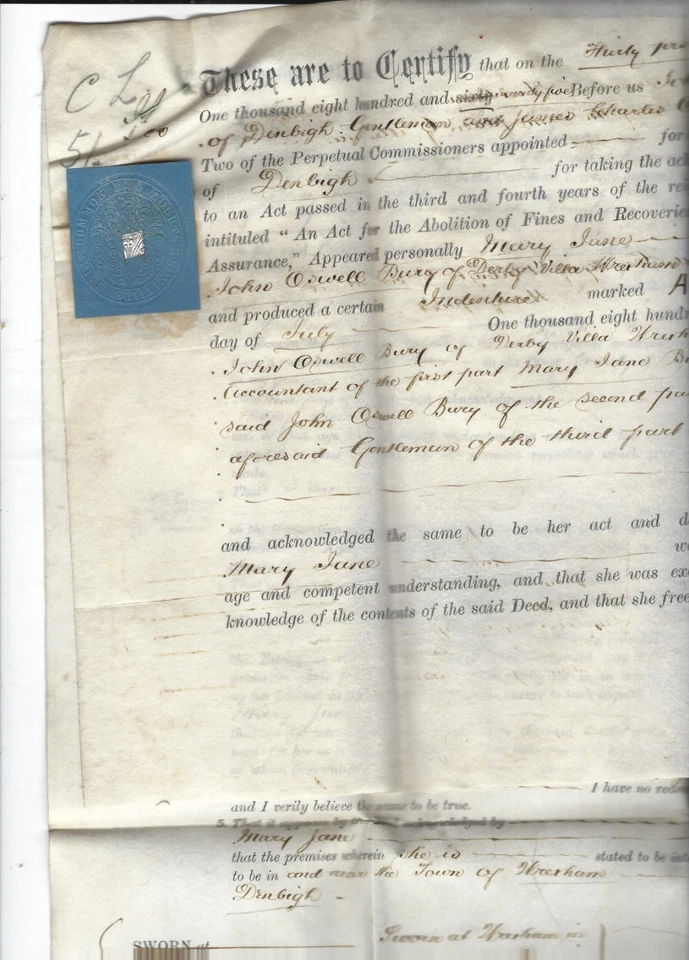 C L
These are to Certify that on the Thirty
One thousand eight hundred and sixty seventy five Before us
of Denbigh Gentleman and James Charles
51
Two of the Perpetual Commissioners appointed for
of Denbigh for taking the
to an Act passed in the third and fourth years of the
intituled "An Act for the Abolition of Fines and Recoverie
Assurance," Appeared personally Mary Jane
John Oswell Bury of Derby Villa Wrexham
and produced a certain Indenture marked A
day of July One thousand eight hund
John Oswell Bury of Derby Villa Wrex
Accountant of the first part Mary Jane B
said John Oswell Bury of the second pa
aforesaid Gentleman of the third part
and acknowledged the same to be her act and d
Mary Jane
age and competent understanding, and that she was ex
knowledge of the contents of the said Deed, and that she free
I have no reas
and I verily believe the same to be true.
5. That it appears by the acknowledged by
Mary Jane
that the premises wherein she is stated to be int
to be in and near the Town of Wrexham
Denbigh
SWORN at Sworn at Wrexham in